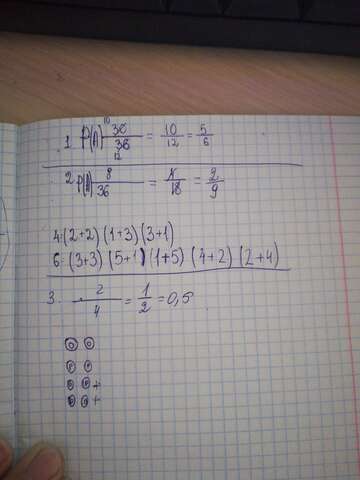 1 P(A) 30/36 = 10/12 = 5/6
10
12
2 P(A) 8/36 = 4/18 = 2/9
4:(2+2) (1+3) (3+1)
6:(3+3) (5+1) (1+5) (4+2) (2+4)
3. 2/4 = 1/2 = 0,5
0 0
P P
P P +
P P +